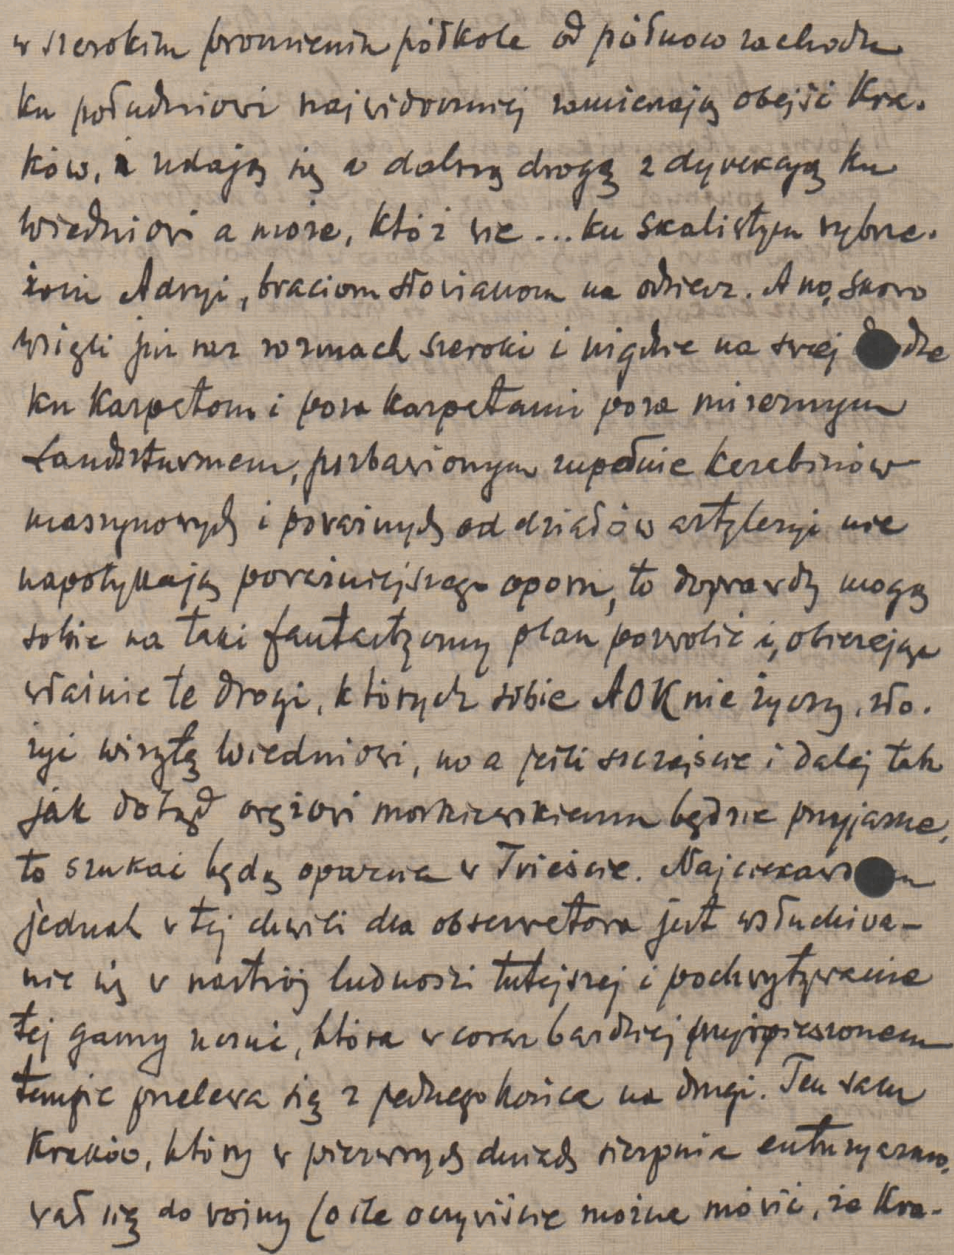 w szerokim promieniu półkole od północo zachodu
ku południowi najwidoczniej zamierzają obejść Kra-
ków, i udają się w dalszą drogę z dyrekcyą ku
Wiedniowi a może, któż wie ... ku skalistym wybrze-
żom Adryi, braciom słowianom na odsiecz. A no, skoro
wzięli już raz rozmach szeroki i nigdzie na swej
ku Karpatom i poza Karpatami poza mizernym
Landszturmem, pozbawionym zupełnie karabinów
maszynowych i poważnych oddziałów artyleryi nie
napotykają poważniejszego oporu, to doprawdy mogą
sobie na taki fantastyczny plan pozwolić i, obierając
właśnie te drogi, których sobie AOK nie życzy, zło-
żyć wizytę Wiedniowi, no a jeśli szczęście i dalej tak
jak dotąd orężowi moskiewskiemu będzie przyjazne,
to szukać będą oparcia w Trieście.
jednak w tej chwili dla obserwatora jest wsłuchiwa-
nie się w nastrój ludności tutejszej i pochwytywanie
tej gamy uczuć, która w coraz bardziej przyśpieszonem
tempie przelewa się z jednego końca na drugi. Ten sam
Kraków, który w pierwszych dniach sierpnia entuzyazmo-
wał się do wojny (o ile oczywiście można mówić, że Kra-